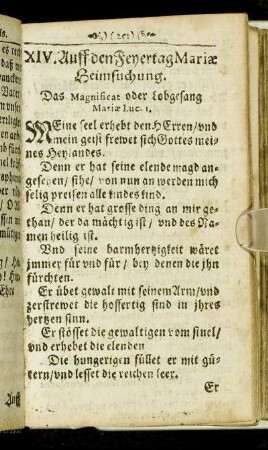 ) (251) (
XIV. Auff den Feyertag Mariæ
Heimsuchung.
Das Magnificat oder Lobgesang
Mariæ Luc. 1.
MEine seel erhebt den HErren/vnd
mein geist frewet sich Gottes mei-
nes Heylandes.
Denn er hat seine elende magd an-
gesehen/ sihe/ von nun an werden mich
selig preisen alle kindes kind.
Denn er hat grosse ding an mir ge-
than/ der da mächtig ist/ vnd des Na-
men heilig ist.
Vnd seine barmhertzigkeit wäret
jmmer für vnd für/ bey denen die jhn
fürchten.
Er übet gewalt mit seinem Arm/vnd
zerstrewet die hoffertig sind in jhres
hertzen sinn.
Er stösset die gewaltigen vom stuel/
vnd erhebet die elenden
Die hungerigen füllet er mit gü-
tern/vnd lesset die reichen leer.
Er